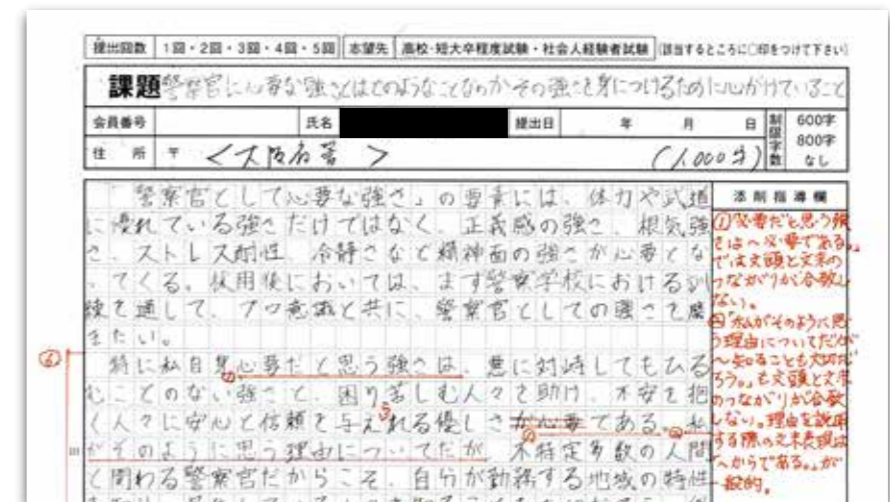 提出回数 1回・2回・3回・4回・5回 志望先 高校・短大卒程度試験・社会人経験者試験 (該当するところに○印をつけて下さい)
課題 警察官に必要な強さとはどのようなことなのかその強さを身につけるために心がけていること
会員番号 氏名 提出日 年 月 日 制限字数 600字 800字 なし
住所 〒 <大阪府警> (1,000字)
「警察官として必要な強さ」の要素には、体力や武道
に優れている強さだけではなく、正義感の強さ、根気強
さ、ストレス耐性、冷静さなど精神面の強さが必要とな
ってくる。採用後においては、まず警察学校における訓
練を通して、プロ意識と共に、警察官としての強さを磨
きたい。
特に私自身必要だと思う強さは、悪に対峙してもひる
むことのない強さと、困り苦しむ人々を助け、不安を抱
く人々に安心と信頼を与えれる優しさが必要である。私
がそのように思う理由についてだが、不特定多数の人間
と関わる警察官だからこそ、自分が勤務する地域の特性
添削指導欄
①「必要だと思う強
さは〜必要である。」
では文頭と文末の
つながりが合致し
ない。
②「私がそのように思
う理由についてだが
〜知ることも大切だ
ろう。」も文頭と文末
のつながりが合致
しない。理由を説明
する際の文末表現は
「〜からである。」が
一般的。